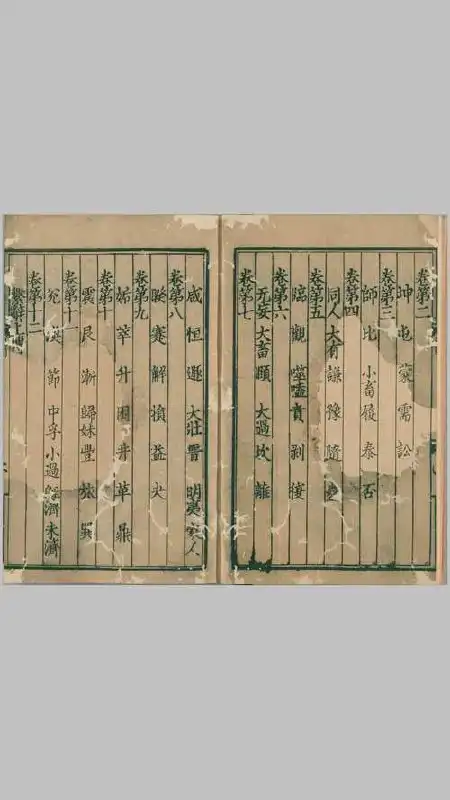 卷第二
坤 屯 蒙 需 訟
卷第三
師 比 小畜 履 泰 否
卷第四
同人 大有 謙 豫 隨
卷第五
臨 觀 噬嗑 賁 剥 復
卷第六
无妄 大畜 頤 大過 坎 離
卷第七
咸 恒 遯 大壯 晋 明夷 家人
卷第八
睽 蹇 解 損 益 夬
卷第九
姤 萃 升 困 井 革 鼎
卷第十
震 艮 漸 歸妹 豐 旅 巽
卷第十一
兌 渙 節 中孚 小過 旣濟 未濟
卷第十二